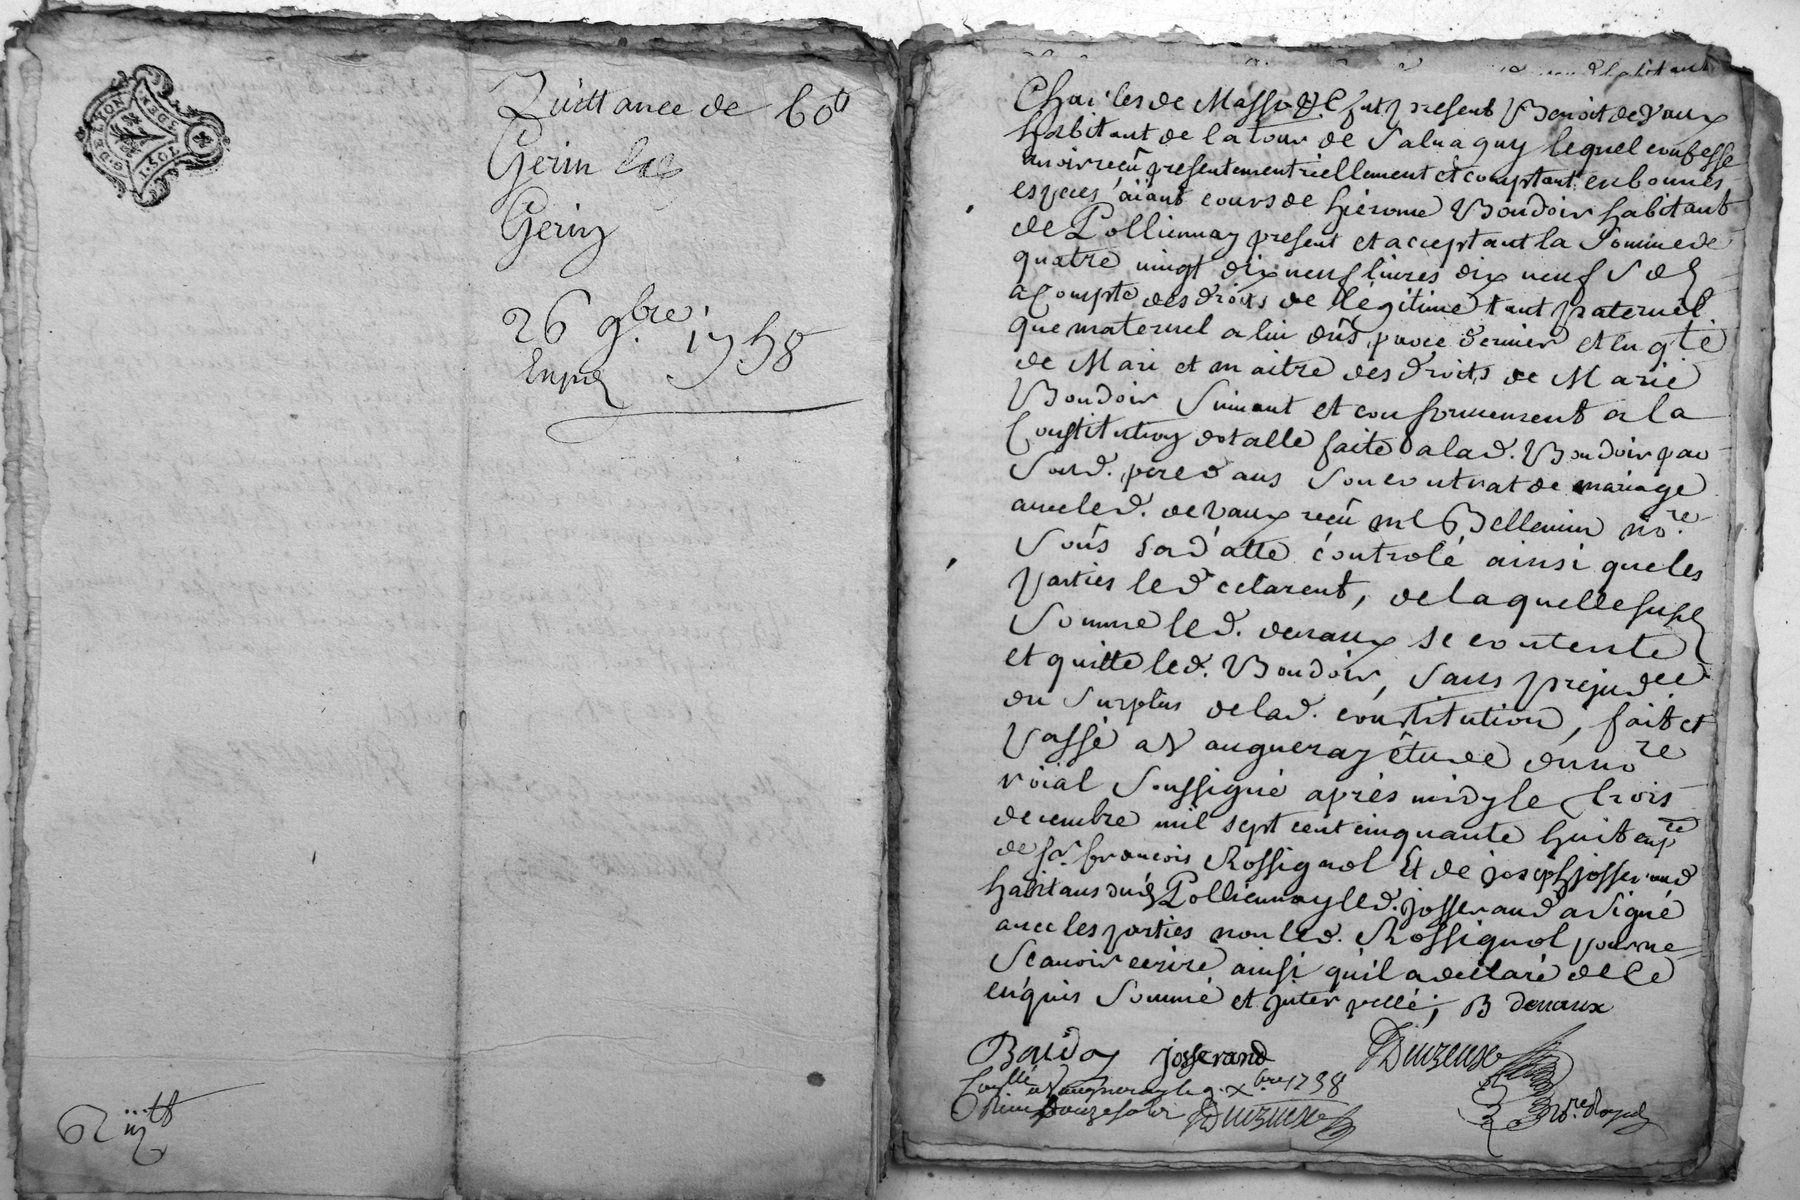 G. DE LYON
1. SOL
Quittance de 60tt
Gerin
Gerin
26 9.bre 1758
Exped
Charles de Masso &c fut present Benoit devaux
habitant de la tour de Salvagny lequel confesse
avoir reçû presentement réellement et comptant en bonnes
especes aiant cours de hierome Boudoir habitant
de Pollienay present et acceptant la Somme de
quatre vingt dix neuf livres dix neuf S d
a Compte des droits de légitime tant paternel
que maternel a lui dûs par ce dernier et en q.te
de Mari et maitre des droits de Marie
Boudoir Suivant et conformement a la
Constitution dotalle faite a lad. Boudoir par
Sond. pere dans Son contrat de mariage
avec led. devaux reçû me Bellemin no.re
Soûs Sa d'atte controlé ainsi que les
parties led'eclarent, de laquelle susd
Somme led. devaux se contente
et quitte led. Boudoir, Sans prejudice
du Surplus de lad. constitution, fait et
passé a Vaugneray étude du no.re
roial Soussigné aprés midy le trois
decembre mil sept cent cinquante huit en p.ce
de sr. francois Rossignol Et de joseph josserand
habitans dud Pollienay led. josserand a Signé
avec les parties non led. Rossignol pour ne
Scavoir ecrire ainsi qu'il a declaré de ce
enquis Sommé et interpellé; B devaux
Boudoy josserand
Con.llé a Vaugneray le 9. Xbre 1758
Reçu Douze Sols
no.re Royal